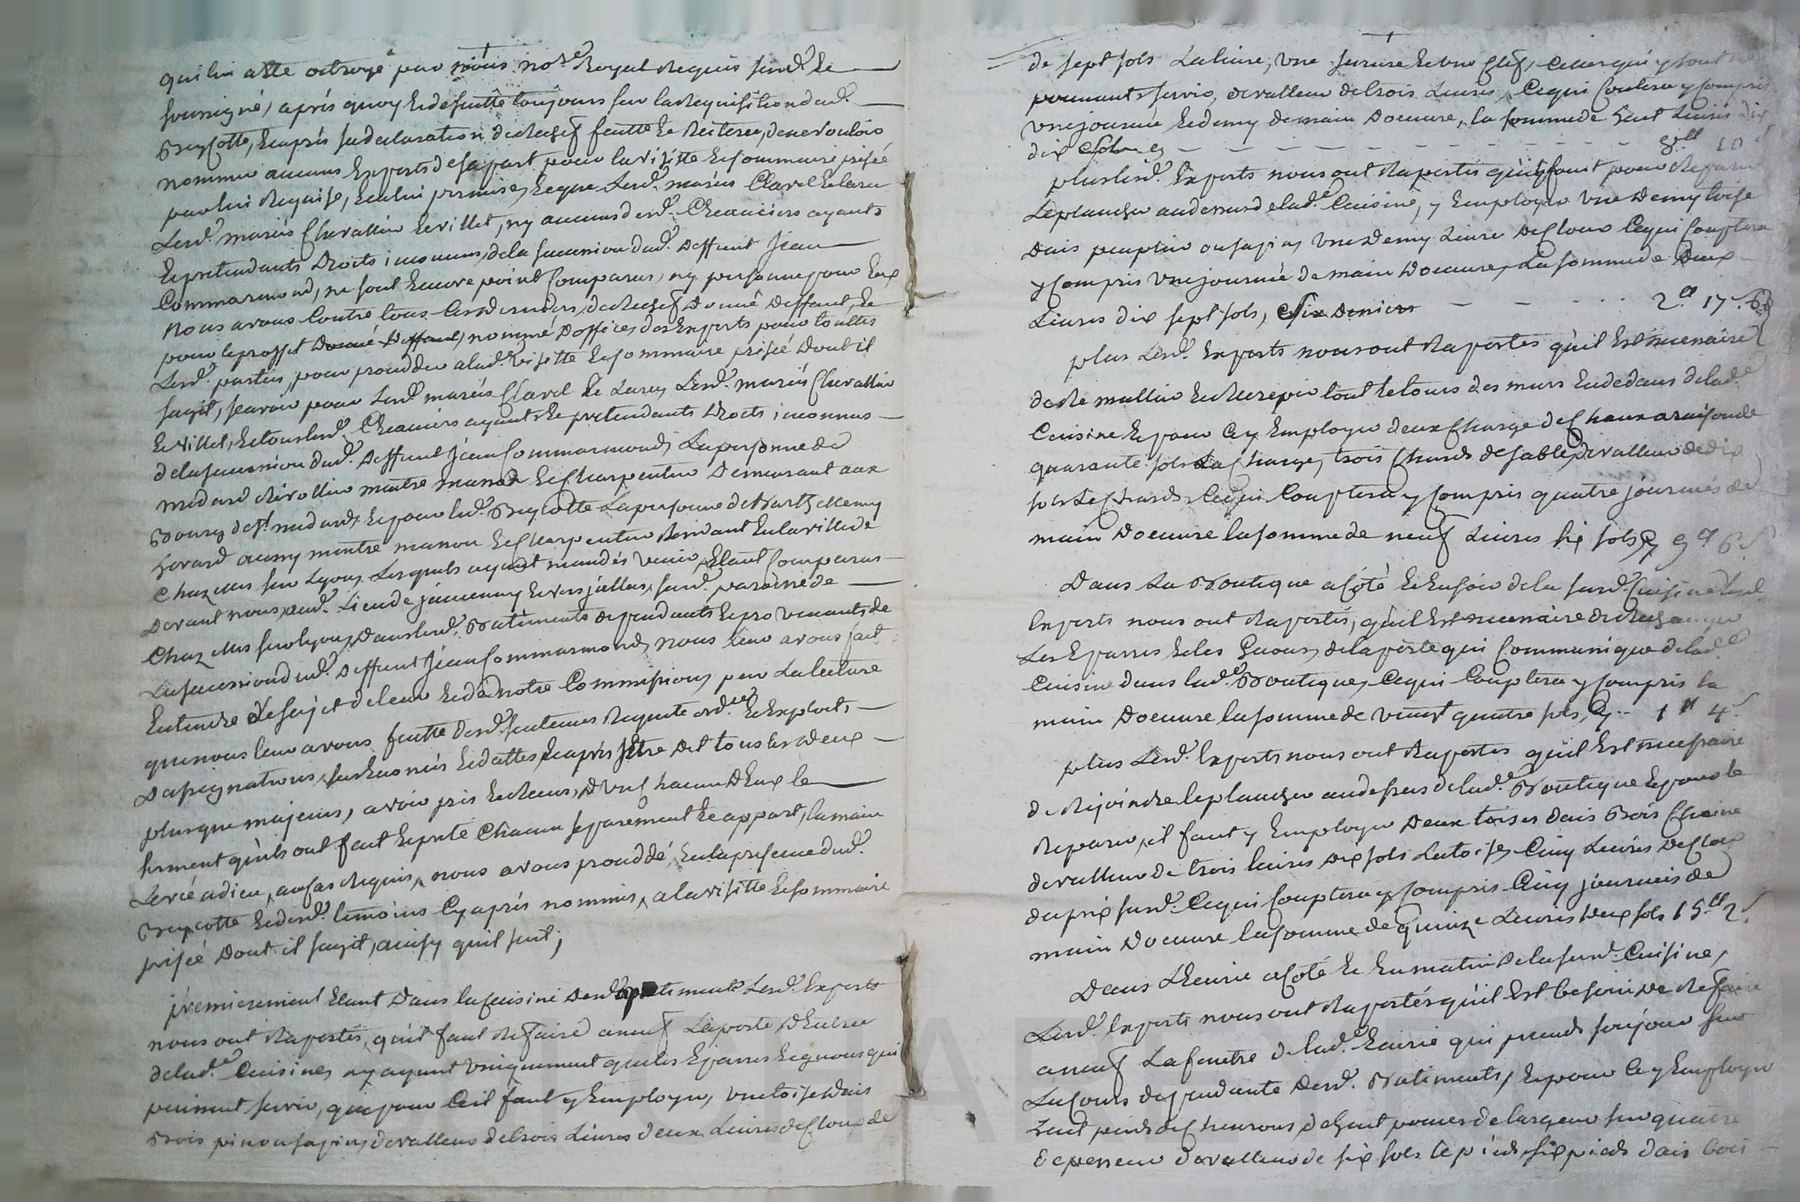 qui lui a été octroyé par nous no.re Royal Requis susd. et
soussigné, aprés quoy et desuitte toujours sur la Requisition dud.
Breyssotte, et aprés sa declaration de Rechef faitte et Reiterée, de ne vouloir
nommer aucuns Experts de sa part pour la visitte et sommaire prisée
par lui Requise, et a lui permise, et que lesd. mariés Clavel et Larue
Lesd. mariés Chevallier et villet, ny aucuns desd. Creanciers ayants
et pretendants Droits inconnus, de la succession dud. deffunt Jean
Commarmond, ne sont Encore point Comparus, ny personne pour Eux
Nous avons Contre tous Ces derniers, de Rechef Donné deffaut, et
pour le proffit Donné deffaut, nommé d'office, des Experts pour touttes
Lesd. parties, pour proceder a lad. visitte et sommaire prisée Dont il
s'agit, sçavoir pour Lesd. mariés Clavel et Larue, Lesd. mariés Chevallier
et villet, et tous lesd. Creanciers ayants et pretendants Droits inconnus
de la succession dud. deffunt Jean Commarmond, La personne de
medard Rivollier maitre masson et Charpentier Demeurant aux
Bourg de St medard, et pour led. la personne de Barthellemy
aussy maitre masson et Charpentier Residant En la ville de
Chazelles sur Lyon, Lesquels ayant mandés venir, Etant Comparus
Devant nous, aud. Lieu de susd. paroisse de
Chazelles sur Lyon, dans lesd. Batiments dependants et provenants de
La succession dud. deffunt Jean Commarmond, nous leur avons fait
Entendre Le sujet de leur et de notre Commission, par La lecture
que nous leur avons faitte desd. sentences Requete ord.ces et Exploits
D'assignations, susEnoncés et dattés, et aprés s'etre dit tous les deux
plus que majeurs, avoir pris et Receus, d'un Chacun D'Eux le
serment qu'ils ont fait et preté Chacun separement et appart, la main
Levée a dieu, au cas Requis, nous avons proceddé, en la presence dud.
et desd. temoins Cy aprés nommés, a la visitte et sommaire
prisée Dont il s'agit, ainsy qu'il suit;
premierement Etant Dans la Cuisine desd. Batiments Lesd. Experts
nous ont Raportés, qu'il faut Refaire a neuf La porte D'Entrée
de lad.e Cuisine, n'y ayant uniquement que les Eparres et gouons qui
puissent servir, que pour Ce il faut y Employer, une toise d'ais
Bois pin ou sapin, de valleur de trois Livres deux Livres de Cloux de
de sept sols La livre, une serrure et une Clef, Celles qui y sont ne
pouvants servir, de valleur de trois Livres, Ce qui Coutera y Compris
une journée et demy de main D'oeuvre, la somme de huit Livres dix
dix sols Cy 8ll 10s
plus lesd. Experts nous ont Raportés qu'il faut pour Reparer
Le plancher au dessus de lad.e Cuisine, y Employer une Demy toise
d'ais peuplier ou sapin, une Demy Livre de Cloux Ce qui Couttera
y Compris une journée de main D'oeuvre, La somme de Deux
Livres dix sept sols, six deniers 2ll 17s 6d
plus Lesd. Experts nous ont Raportés qu'il Est necessaire
de Remaller et Recrepir tout le tour des murs En dedans de lad.e
Cuisine et pour Ce y Employer deux Charge de Chaux a raison de
quarante sols La Charge, trois Chards de sable, de valleur de dix
sols Le Chards Ce qui Couttera y Compris quatre journées de
main D'oeuvre la somme de neuf Livres six sols Cy 9ll 6s
Dans La Boutique a Coté et En soir de la susd. Cuisine Lesd.
Experts nous ont Raportés, qu'il Est necessaire de Rechanger
Les Eparres et les Gouons de la porte qui Communique de lad.e
Cuisine dans lad.e Boutique, Ce qui Couttera y Compris la
main D'oeuvre la somme de vingt quatre sols, Cy 1ll 4s
plus Lesd. Experts nous ont Raportés qu'il Est necessaire
de Rejoindre le plancher au dessus de lad.e Boutique et pour le
Reparer, il faut y Employer Deux toises d'ais Bois Chaine
de valleur de trois Livres dix sols La toise, Cinq Livres de Cloux
du prix susd. Ce qui Couttera y Compris Cinq journées de
main D'oeuvre la somme de quinze Livres deux sols 15ll 2s
Dans L'Ecurie a Coté et En matin de la susd. Cuisine,
Lesd. Experts nous ont Raportés qu'il Est besoin de Refaire
a neuf La fenetre de lad.e Ecurie qui prends son jour sur
La Cour dependante desd. Batiments, et pour Ce y Employer
huit pieds de Chevrons, de huit pouces de largeur sur quatre
d'epesseur de valleur de six sols le pied, six pieds d'ais bois